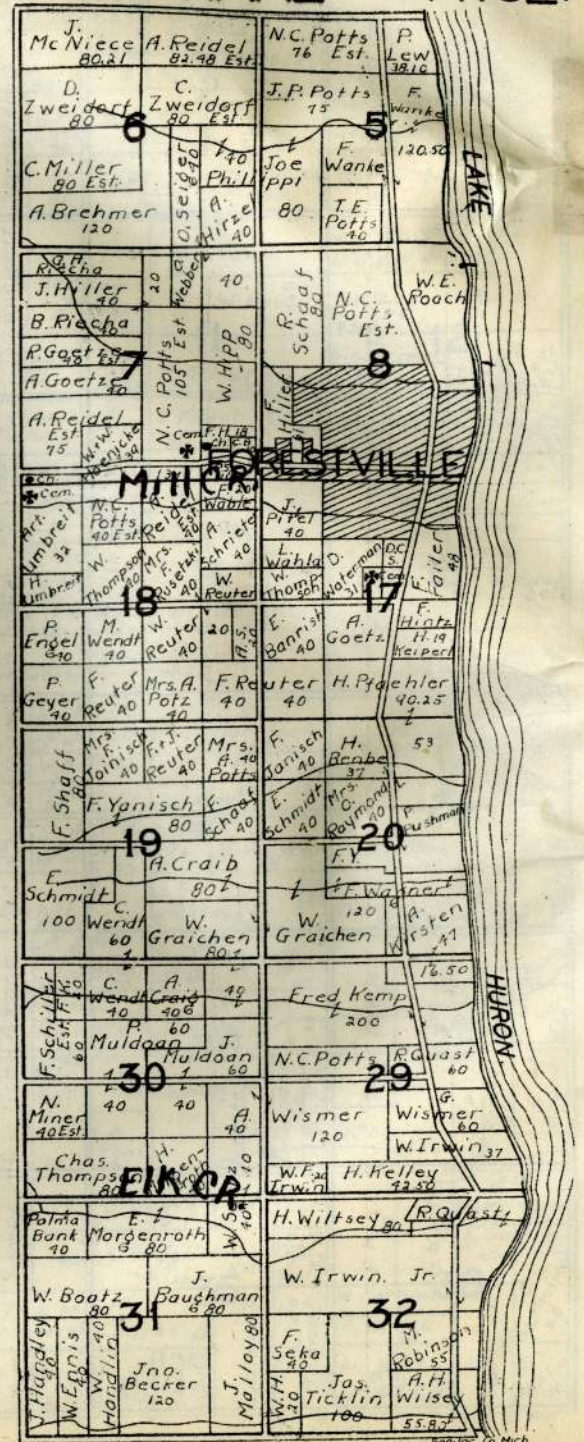 J.
McNiece
80.21
A. Reidel
82.48 Est.
N.C. Potts
76 Est.
P.
Lew
38.10
D.
Zweidorf
80
C.
Zweidorf
80 Est
6
J.P. Potts
75
5
F.
Wanke
120.50
LAKE
C. Miller
80 Est.
O. Seiger
40
40
Philippi
Joe
80
F.
Wanke
A. Brehmer
120
A.
Hirzel
40
T.E.
Potts
40
Riecha
J. Hiller
40
20
Webber
40
R.
Schaaf
80
N.C.
Potts
Est.
W.E.
Roach
B. Riecha
40
R. Goetze
40 Est
A. Goetze
40
7
N.C. Potts
105 Est.
W. Hipp
80
8
A. Reidel
Est
75
W.+W.
Hoenicke
Cem.
F.H. 18
Ch.
F. Hiller
FORESTVILLE
Mill Cr.
Ch.
Cem.
Art.
Umbreit
32
N.C.
Potts
40 Est.
Reidel
Est
40
F.
Wable
J.
Pitel
40
H.
Umbreit
W.
Thompson
40
Mrs.
F.
Rusetzki
40
A.
Schriete
40
W.
Reuter
L.
Wahla
W.
Thompson
D.
Waterman
31
D.C.
S.
Cem
F.
Failer
48
18
17
P.
Engel
40
M.
Wendt
40
W.
Reuter
40
20
A.S.
20
E.
Banrist
40
A.
Goetz
F.
Hintz
H. 19
Keipert
P.
Geyer
40
F.
Reuter
40
Mrs. A.
Potz
40
F. Reuter
40
40
H. Pfaehler
90.25
F. Shaff
80
Mrs.
F.
Joinisch
40
F.+J.
Reuter
40
Mrs.
A. 40
Potts
F.
Janisch
40
H.
Benbe
37
53
F. Yanisch
80
F.
Schaaf
40
E.
Schmidt
40
Mrs.
C.
Raymond
40
P.
Pushman
19
20
E.
Schmidt
100
A. Craib
80
F.Y.
F. Wagner
120
C.
Wendt
60
W.
Graichen
80
W.
Graichen
A.
Kirsten
47
16.50
F. Schiller
Est.
60
F.K.
40
C.
Wendt
40
A.
Craig
40
40
Fred Kemp
200
HURON
P. 60
Muldoan
J.
Muldoan
60
N.C. Potts
R. Quast
60
30
29
N.
Miner
40 Est.
40
40
A.
40
Wismer
120
G.
Wismer
60
W. Irwin 37
Chas.
Thompson
80
H.
Elk CR.
W.F. 20
Irwin
H. Kelley
42.50
Palma
Bunk
40
E.
Morgenroth
80
W. S
40
H. Wiltsey 80
R. Quast
W. Boatz
80
J.
Baughman
80
W. Irwin, Jr.
31
32
J. Handley
40
W. Ennis
40
W.
Handlin
40
Jno.
Becker
120
J.
Malloy 80
F.
Seka
40
M.
Robinson
55
W.H.
20
Jas.
Ticklin
100
A.H.
Wilsey
55.83